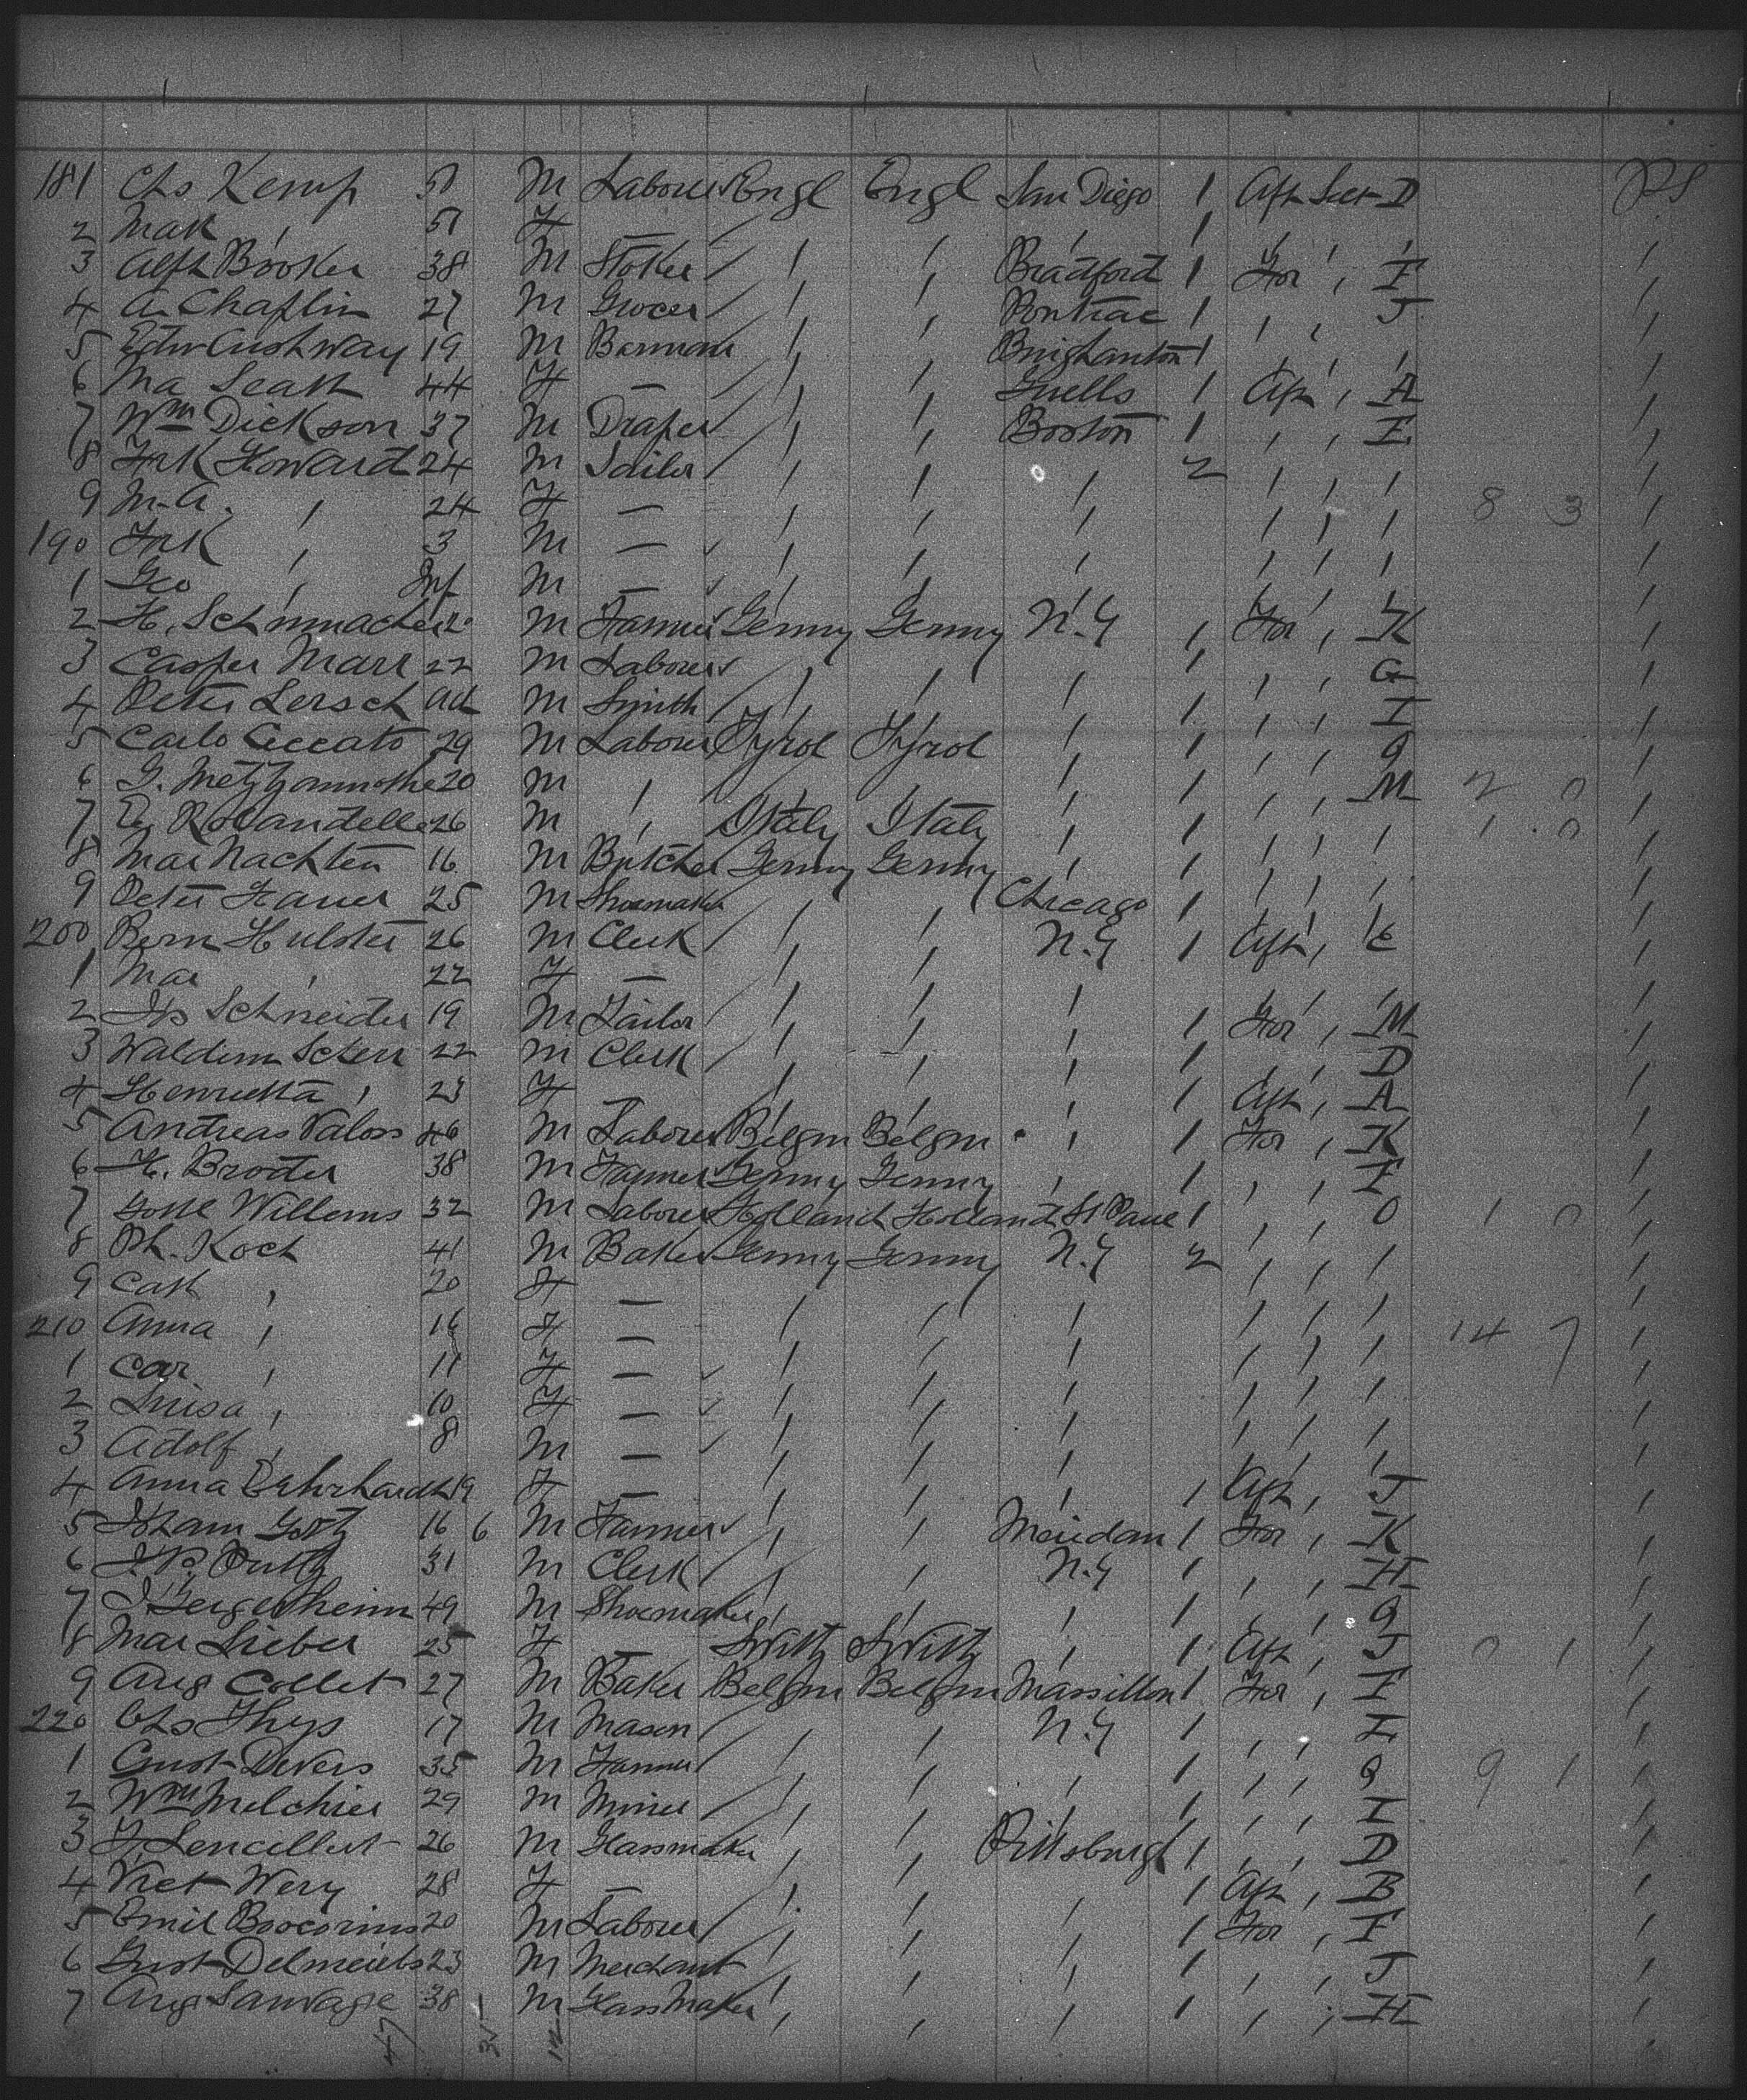 181 Chs Kemp 51 M Labourer Engl Engl San Diego 1 Aft Sect D PS
2 Mak " 51 F — " " " 1 " " " "
3 Alfh Booker 38 M Stoker " " Bradford 1 For " F "
4 A. Chaplin 27 M Grocer " " Pontiac 1 " " J "
5 Edw Cushway 19 M Barman " " Binghamton 1 " " " "
6 Ma Seath 44 F — " " 1 Aft " A "
7 Wm Dickson 37 M Draper " " Boston 1 " " E "
8 Frk Howard 24 M Tailor " " " 2 " " " "
9 M.A. " 24 F — " " " " " " 8 3 "
190 Frk " 3 M — " " " " " " "
1 Geo " Inf M — " " " " " " "
2 H. Schumacher M Farmer Germy Germy N.Y " For " K "
3 Casper Marx 22 M Labourer " " " 1 " " G "
4 Peter Lersch Ad M Smith " " " 1 " " I "
5 Carlo Ceccato 29 M Labourer Tyrol Tyrol " 1 " " "
6 20 M " " " " 1 " " M 2 0 "
7 26 M " Italy Italy " 1 " " " 1 0 "
8 Mar Nachten 16 M Butcher Germy Germy " 1 " " " "
9 Peter Hauer 25 M Shoemaker " " Chicago 1 " " " "
200 Bern Hulster 26 M Clerk " " N.Y 1 Aft " C "
1 Mar " 22 F — " " " " " " "
2 Jos Schneider 19 M Tailor " " " 1 For " M "
3 Waldem Scherr 22 M Clerk " " " 1 " " D "
4 Henrietta " 23 F — " " " 1 Aft " A "
5 Andreas Valoss 46 M Labourer Belgm Belgm " 1 For " K "
6 H. Broder 38 M Farmer Germy Germy " 1 " " F "
7 Willems 32 M Labourer Holland Holland St Paul 1 " " O 1 0 "
8 Ph. Koch 41 M Baker Germy Germy N.Y 2 " " " "
9 Cath " 20 F — " " " " " " "
210 Anna " 16 F — " " " " " " 14 7 "
1 Car " 11 F — " " " " " " "
2 Luisa " 10 F — " " " " " " "
3 Adolf " 8 M — " " " " " " "
4 Anna Gehrhardt 19 F — " " " 1 Aft " J "
5 16 6 M Farmer " " Meridan 1 For " K "
6 31 M Clerk " " N.Y 1 " " H "
7 49 M Shoemaker " " " 1 " " "
8 Mar Lieber 25 F — Switz Switz " 1 Aft " J 0 1 "
9 Aug Collet 27 M Baker Belgm Belgm Massillon 1 For " F "
220 Chs Thys 17 M Mason " " N.Y 1 " " "
1 Gust Devers 35 M Farmer " " " 1 " " 9 1 "
2 Wm Melchier 29 M Miner " " " 1 " " I "
3 26 M Glassmaker " " Pittsburgh 1 " " D "
4 Vict Wery 28 F — " " " 1 Aft " B "
5 Emil 20 M Labourer " " " 1 For " F "
6 Gust 23 M Merchant " " " 1 " " J "
7 Aug Sauvage 38 M Glassmaker " " " 1 " " H "